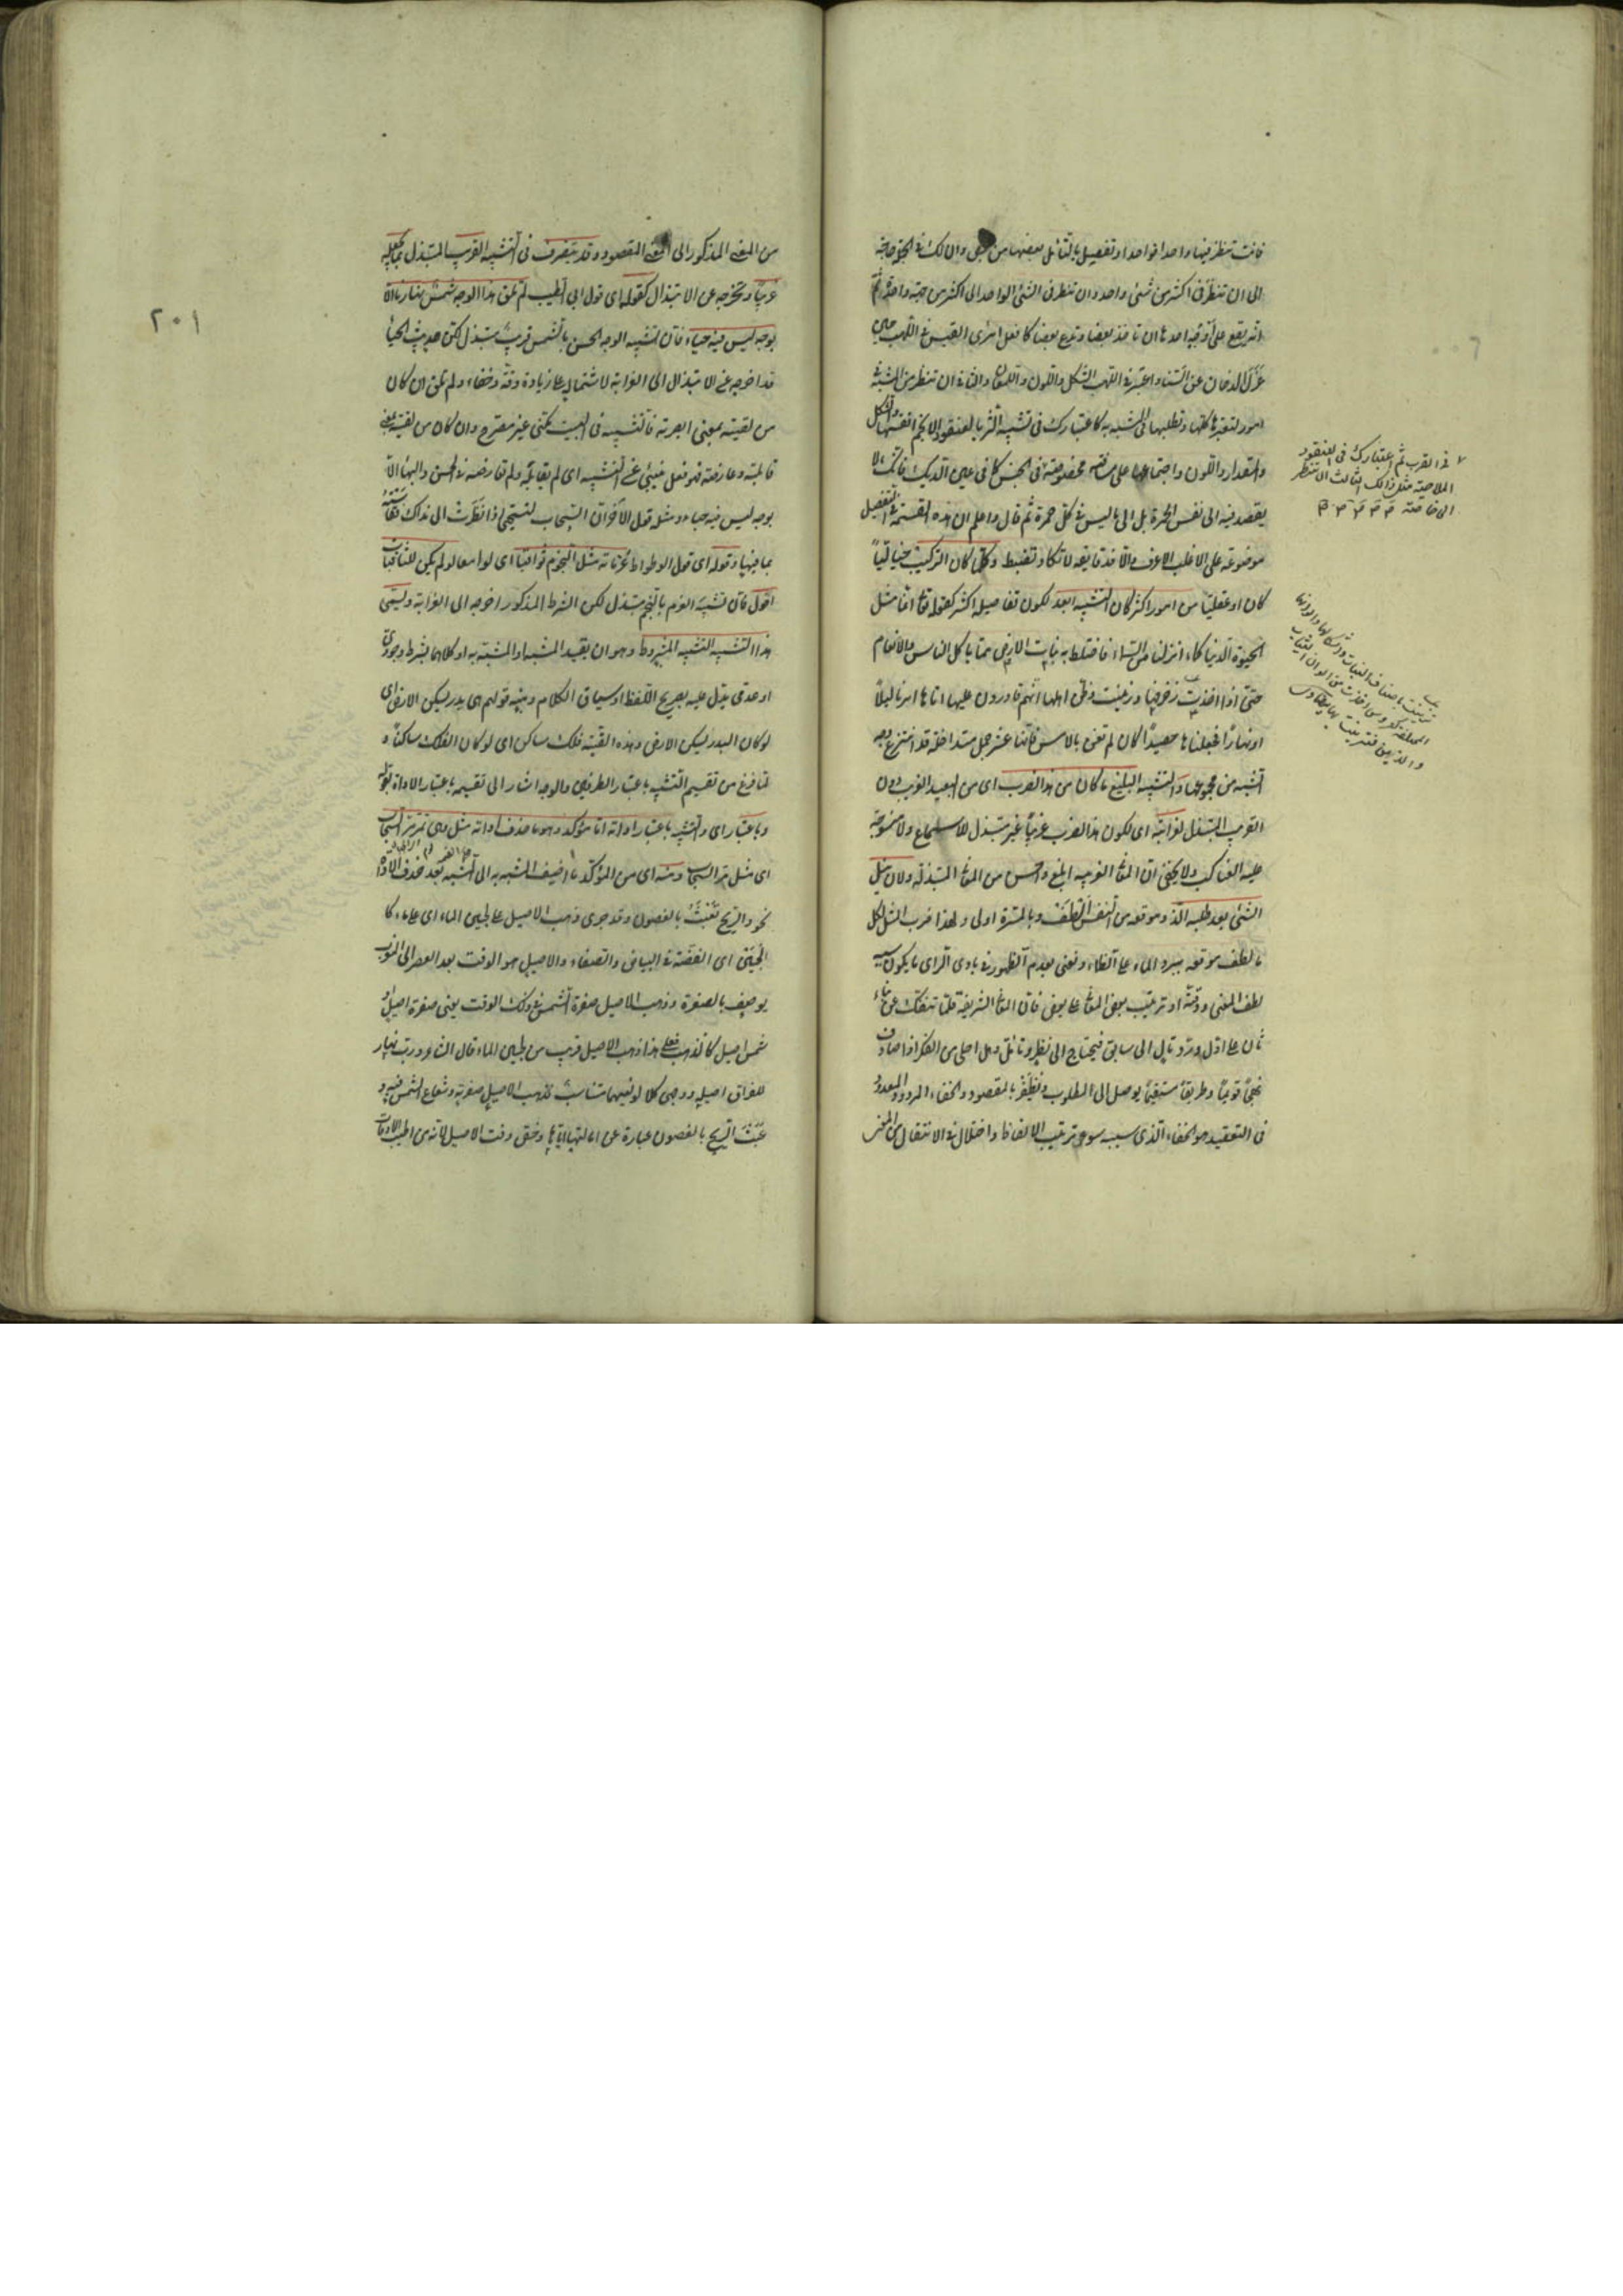 فانت تنظر فيها واحدا فواحدا وتفصيل بالتأمل بعضها من بعض وان لك في الجملة حاجة
الى ان تنظر في اكثر من شئ واحد وان تنظر في الشئ الواحد الى اكثر من جهة واحدة ثم
انه يقع على اوجه احدها ان تأخذ بعضا وتدع بعضا كما فعل امرئ القيس في اللهب حين
عزل الدخان عن السنا واعتبر في اللهب الشكل واللون واللمعان والثاني ان تنظر من المشبه في
امور لتعتبرها كلها وتطلبها في المشبه به كاعتبارك في تشبيه الثريا بالعنقود الانجم انفسها والشكل
والمقدار واللون واجتماعها على مسافة مخصوصة في القرب ثم اعتبارك في العنقود
الملاحية مثل ذلك الثالث ان تنظر
الى خاصة في الجنس كما في عين الديك فانك لا
يقصد فيه الى نفس الحمرة بل الى ما ليس في كل حمرة ثم قال واعلم ان هذه القسمة في التفصيل
موضوعة على الاغلب الاعرف والا فدقايقه لا تكاد تضبط وكلما كان التركيب خياليا
كان او عقليا من امور اكثر كان التشبيه ابعد لكون تفاصيله اكثر كقوله تع انما مثل
الحيوة الدنيا كماء انزلناه من السماء فاختلط به نبات الارض مما يأكل الناس والانعام
حتى اذا اخذت الارض زخرفها وازينت وظن اهلها انهم قادرون عليها اتاها امرنا ليلاً
او نهاراً فجعلناها حصيداً كان لم تغن بالامس فانها عشر جمل متداخلة قد انتزع وجه
الشبه من مجموعها والتشبيه البليغ ما كان من هذا الضرب اى من البعيد الغريب دون
القريب المبتذل لغرابته اى لكون هذا الضرب غريباً غير مبتذل للاسماع ولا منسوجة
عليه العناكب ولا يخفى ان المعاني الغريبة ابلغ واحسن من المعاني المبتذلة ولان نيل
الشئ بعد طلبه الذ وموقعه من النفس الطف وبالمسرة اولى ولهذا ضرب المثل لكل
ما لطف موقعه ببرد الماء على الظماء ونعني بعدم الظهور في بادى الراى ما يكون سببه
لطف المعنى ودقته او ترتيب بعض المعاني على بعض فان المعاني الشريفة قلما تنفك عن بناء
ثان على اول ورد تال الى سابق فيحتاج الى نظر وتأمل وهل احلى من الفكر اذا صادف
نهجاً قويماً وطريقاً مستقيماً يوصل الى المطلوب ونظفر بالمقصود والخفاء المردود المعدود
في التعقيد هو الخفاء الذى سببه سوء ترتيب الالفاظ واختلال في الانتقال من المعنى
٢٠١
من المعنى المذكور الى المعنى المقصود وقد يتصرف في التشبيه القريب المبتذل بما يجعله
غريباً ويخرجه عن الابتذال كقوله اى قول ابى الطيب لم تلق هذا الوجه شمس نهارنا الا
بوجه ليس فيه حياء فان تشبيه الوجه الحسن بالشمس قريب مبتذل لكن حديث الحياء
قد اخرجه عن الابتذال الى الغرابة لاشتماله على زيادة دقة وخفاء ولم تلق ان كان
من لقيته بمعنى ابصرته فالتشبيه في البيت مكنى غير مصرح وان كان من لقيته بمعنى
قابلته وعارضته فهو فعل ينبئ عن التشبيه اى لم يقابله ولم تعارضه في الحسن والبهاء الا
بوجه ليس فيه حياء ومثله قول الآخر ان السحاب لتستحي اذا نظرت الى نداك فقاسته
بما فيها وقوله اى قول الوطواط عزماته مثل النجوم ثواقباً اى لوامعا لو لم يكن للثاقبات
افول فان تشبيه العزم بالنجم مبتذل لكن الشرط المذكور اخرجه الى الغرابة ويسمى
هذا التشبيه التشبيه المشروط وهو ان يقيد المشبه او المشبه به او كلاهما بشرط وجودى
او عدمى يدل عليه بصريح اللفظ او سياق الكلام ومنه قولهم هى بدر يسكن الارض اى
لو كان البدر يسكن الارض وهذه القبة فلك ساكن اى لو كان الفلك ساكناً و
لما فرغ من تقسيم التشبيه باعتبار الطرفين والوجه اشار الى تقسيمه باعتبار الاداة بقوله
وباعتبار اى والتشبيه باعتبار اداته اما مؤكد وهو ما حذف اداته مثل وهى تمر مر السحاب
اى مثل مر السحاب ومنه اى من المؤكد ما اضيف المشبه به الى المشبه بعد حذف الاداة
نحو والريح تعبث بالغصون وقد جرى ذهب الاصيل على لجين الماء اى على ماء كا
للجين اى الفضة في البياض والصفاء والاصيل هو الوقت بعد العصر الى الغروب
يوصف بالصفرة وذهب الاصيل صفرة الشمس في ذلك الوقت يعنى صفرة اصيل او
شمس اصيل كالذهب فعلى هذا ذهب الاصيل قريب من لجين الماء قال الشاعر ورب نهار
للفراق اصيله ووجهى كلا لونيهما متناسب فذهب الاصيل صفرته وشعاع الشمس فيه و
عبث الريح بالغصون عبارة عن امالتها اياها وخص وقت الاصيل لانه من اطيب الاوقات